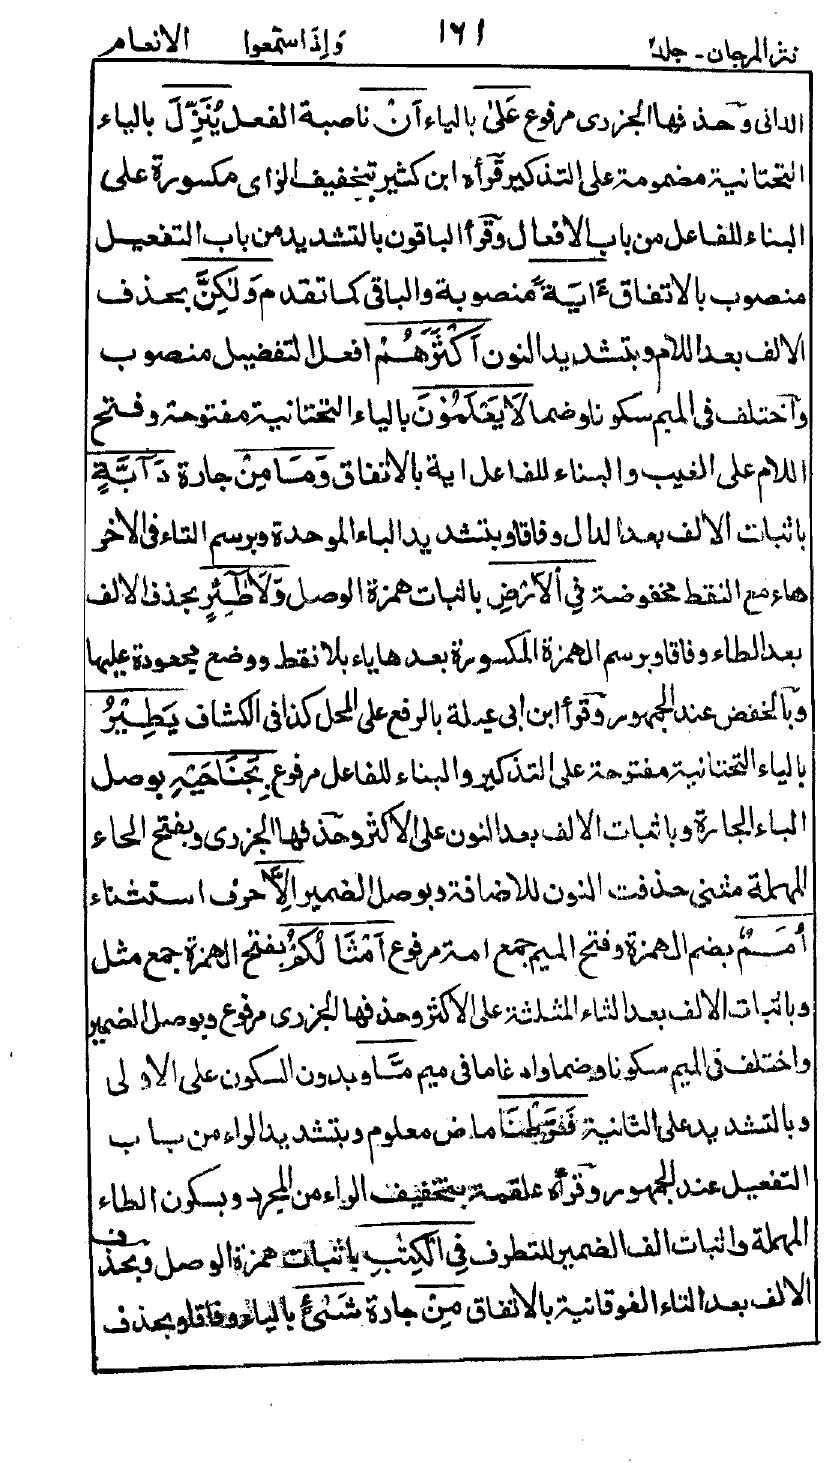 نثر المرجان - جلد٢ ١٦١ وَإِذَا سَمِعُوا الانعام
الدانى وَحذفها الجزرى مرفوع عَلىٰ بالياء اَنْ ناصبة الفعل يُنَزِّلَ بالياء
التحتانية مضمومة على التذكير قرأه ابن كثير بتخفيف الزاى مكسورة على
البناء للفاعل من باب الافعال وقرأ الباقون بالتشديد من باب التفعيل
منصوب بالاتفاق ءَايَةً منصوبة والباقى كما تقدم وَلٰكِنَّ بحذف
الالف بعد اللام وبتشديد النون اَكْثَرَهُمْ افعل التفضيل منصوب
واختلف فى الميم سكونا وضما لَا يَعْلَمُوْنَ بالياء التحتانية مفتوحة وفتح
اللام على الغيب والبناء للفاعل اية بالاتفاق وَمَا مِنْ جارة دَآبَّةٍ
باثبات الالف بعد الدال وفاقا وبتشديد الباء الموحدة وبرسم التاء فى الاخر
هاء مع النقط مخفوضة فِي الْاَرْضِ باثبات همزة الوصل وَلَا طٰٓئِرٍ بحذف الالف
بعد الطاء وفاقا وبرسم الهمزة المكسورة بعدها ياء بلا نقط ووضع مجعودة عليها
وبالخفض عند الجمهور وقرأ ابن ابى عبلة بالرفع على المحل كذا فى الكشاف يَطِيْرُ
بالياء التحتانية مفتوحة على التذكير والبناء للفاعل مرفوع بِجَنَاحَيْهِ بوصل
الباء الجارة وباثبات الالف بعد النون على الاكثر وحذفها الجزرى وبفتح الحاء
المهملة مثنى حذفت النون للاضافة وبوصل الضمير اِلَّا حرف استثناء
اُمَمٌ بضم الهمزة وفتح الميم جمع امة مرفوع اَمْثَالُكُمْ بفتح الهمزة جمع مثل
وباثبات الالف بعد الثاء المثلثة على الاكثر وحذفها الجزرى مرفوع وبوصل الضمير
واختلف فى الميم سكونا وضما وادغاما فى ميم مَّا وبدون السكون على الاولى
وبالتشديد على الثانية فَرَّطْنَا ماض معلوم وبتشديد الراء من باب
التفعيل عند الجمهور وقرأه علقمة بتخفيف الراء من المجرد وبسكون الطاء
المهملة واثبات الف الضمير للتطرف فِي الْكِتٰبِ باثبات همزة الوصل وبحذف
الالف بعد التاء الفوقانية بالاتفاق مِنْ جارة شَىْءٍ بالياء وفاقا وبحذف